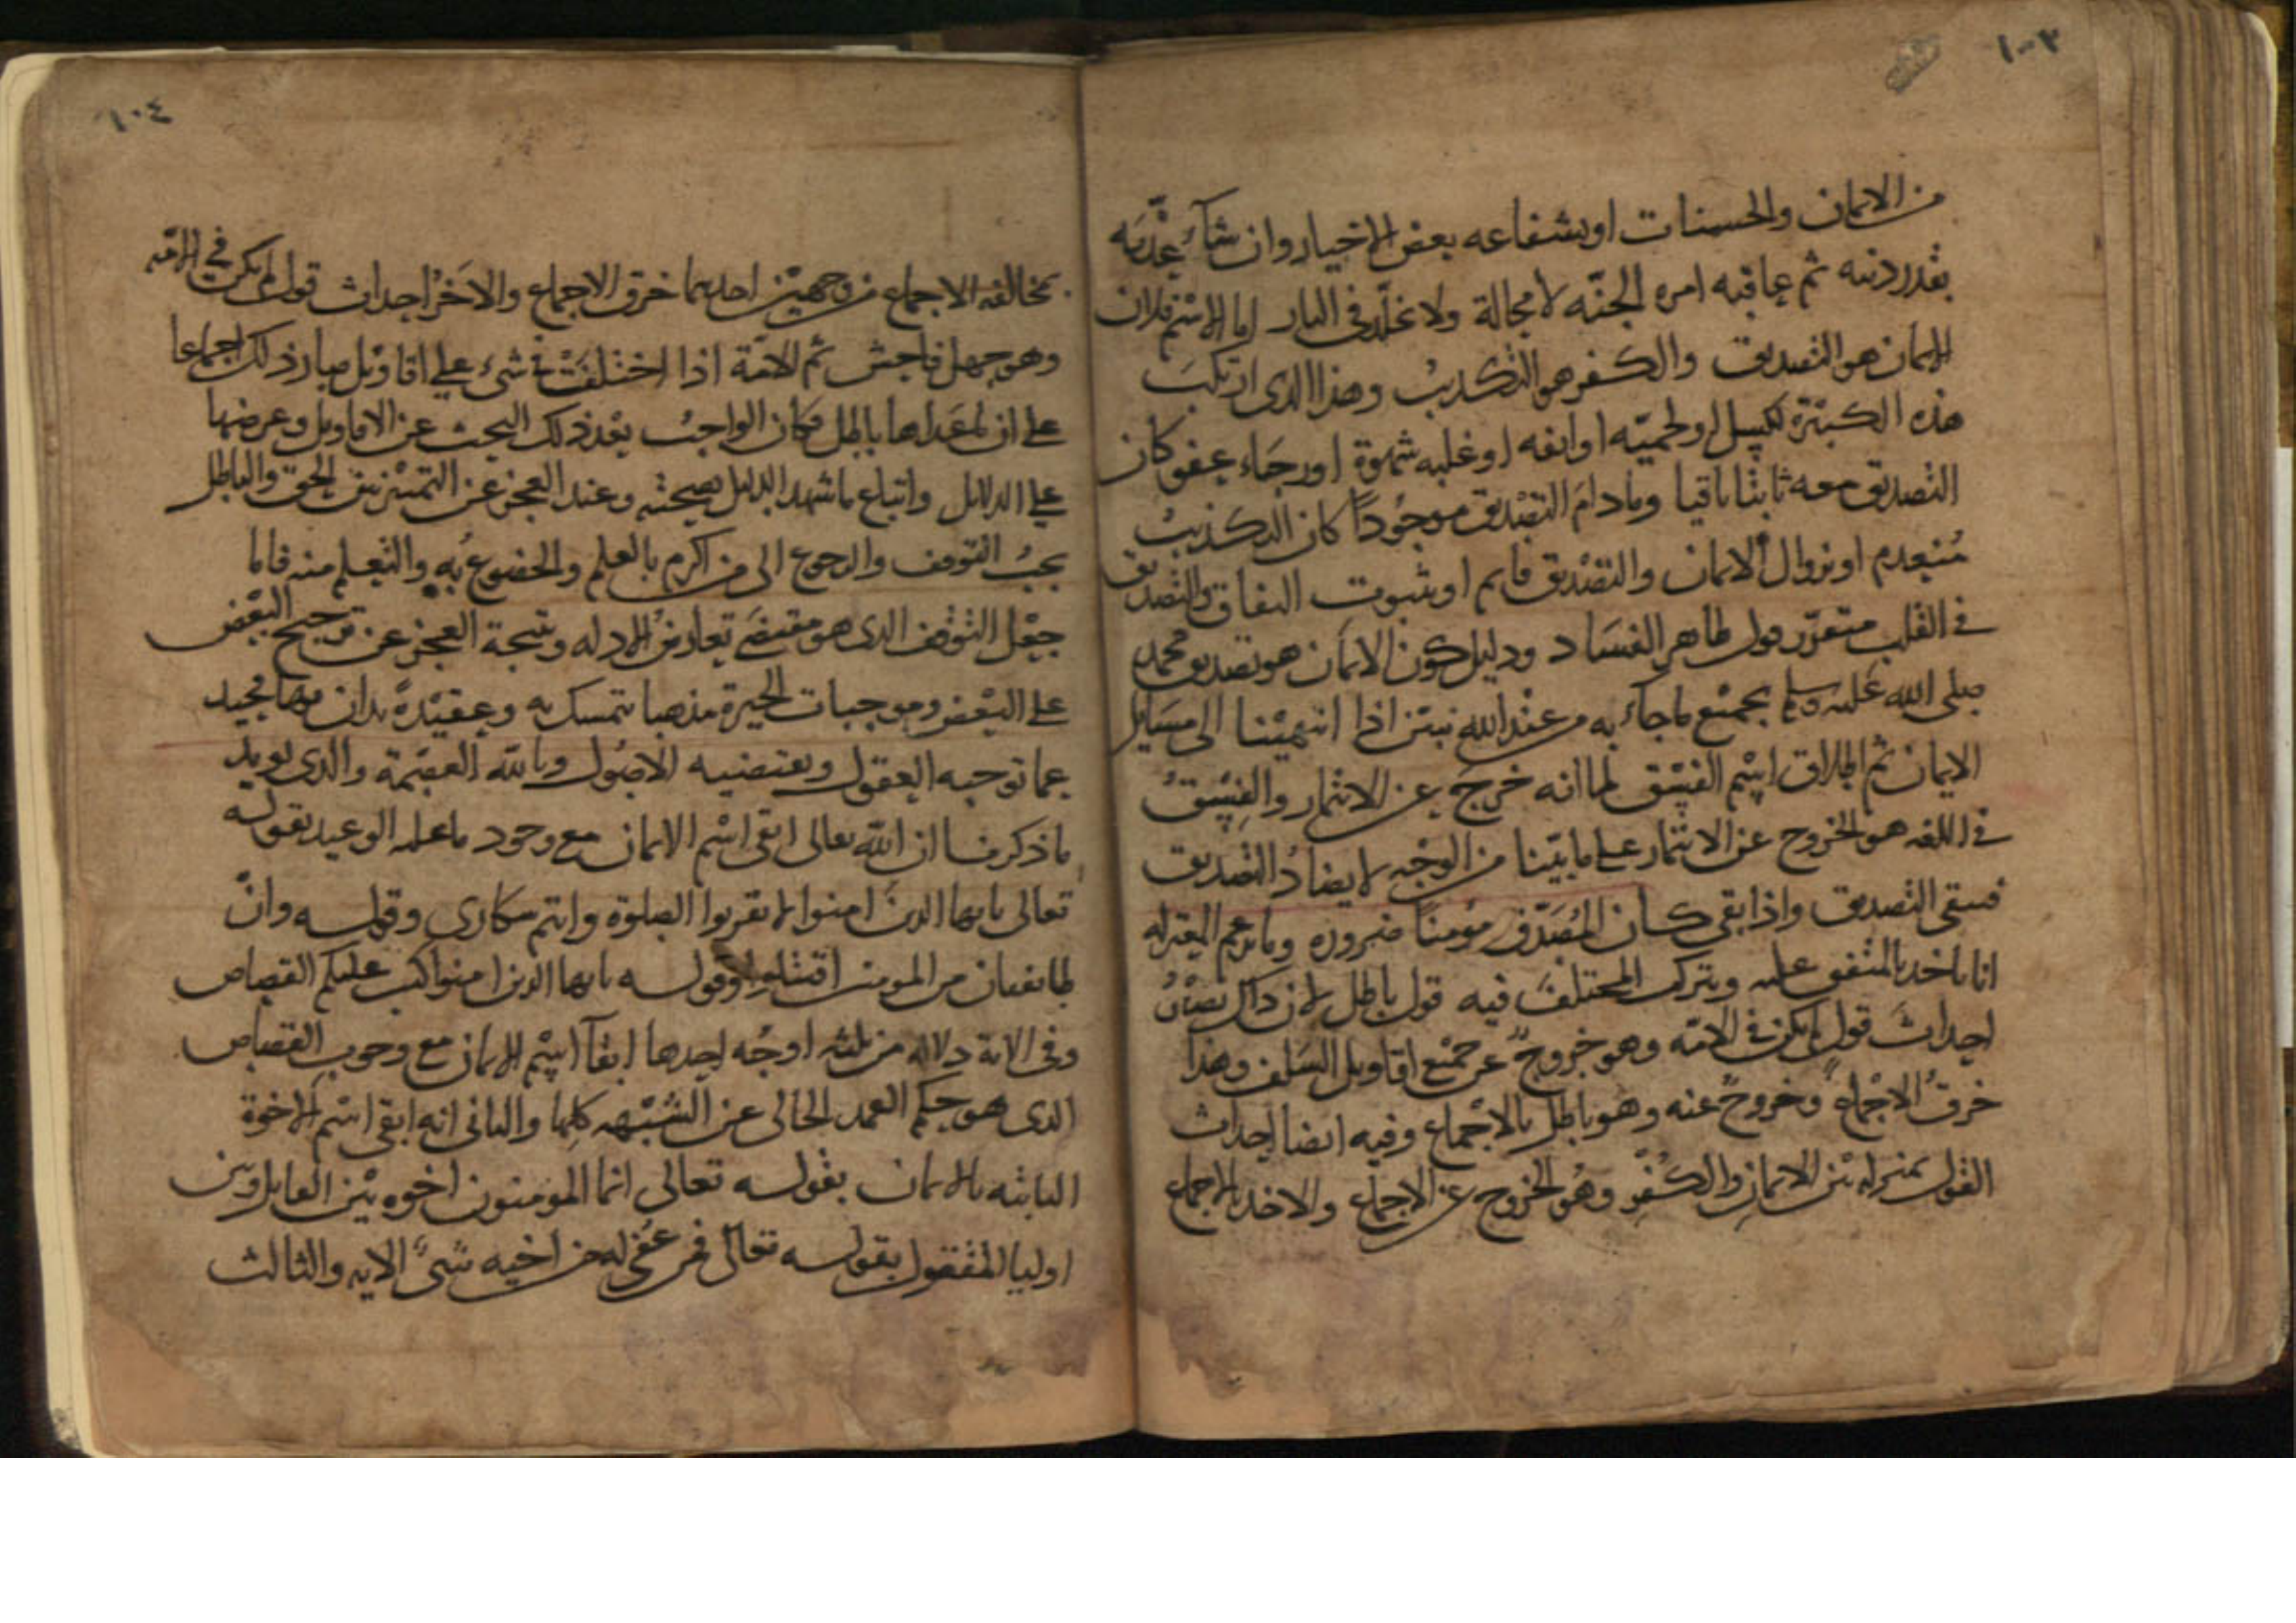 ١٠٣
من الايمان والحسنات او بشفاعه بعض الاخيار وان شآء عذّبه
بقدر ذنبه ثم عاقبه امره الجنّه لا محالة ولا يخلّد فى النار اما الاسم فلان
الايمان هو التصديق والكفر هو التكذيب وهذا الذى ارتكب
هذه الكبيرة لكسل او لحميّه او انفه او غلبه شهوة او رجاء عفو كان
التصديق معه ثابتا باقيا وما دام التصديق موجودًا كان التكذيب
منعدم او بزوال الايمان والتصديق قايم او بثبوت النفاق والتصديق
فى القلب متقرّر قول ظاهر الفساد ودليل كون الايمان هو تصديق محمد
صلى الله عليه وسلم بجميع ما جآء به من عند الله نبيّن اذا انتهينا الى مسايل
الايمان ثم اطلاق اسم الفسق لما انه خرج عن الائتمار والفسق
فى اللغه هو الخروج عن الائتمار على ما بيّنا من الوجه لا يضادّ التصديق
فبقى التصديق واذا بقى كان المصدّق مؤمنا ضروره وما يزعم المعتزله
انا ناخذ بالمتفق عليه ونترك المختلف فيه قول باطل لان ذاك
احداث قول لم يكن فى الامّه وهو خروج عن جميع اقاويل السلف وهذا
خرق الاجماع وخروج عنه وهو باطل بالاجماع وفيه ايضا احداث
القول بمنزله بين الايمان والكفر وهو الخروج عن الاجماع والاخذ بالاجماع
١٠٤
بمخالفه الاجماع من وجهين احدهما خرق الاجماع والاخر احداث قول لم يكن فى الامّه
وهو جهل فاحش ثم الامّة اذا اختلفت فى شىء على اقاويل صار ذلك اجماعا
على ان ما عداها باطل فكان الواجب بعد ذلك البحث عن الاقاويل وعرضها
على الدلايل واتباع ما شهد الدليل بصحته وعند العجز عن التمييز بين الحق والباطل
يجب التوقف والرجوع الى من اكرم بالعلم والخضوع به والتعلم منه فاما
جعل التوقف الذى هو مقتضى تعارض الادله ونتيجة العجز عن ترجيح البعض
على البعض وموجبات الحيرة مذهبا يتمسك به وعقيدة يدان بها
عما توجبه العقول وتقتضيه الاصول وبالله العصمة والذى يويد
ما ذكرنا ان الله تعالى ابقى اسم الايمان مع وجود ما عليه الوعيد بقوله
تعالى يا يها الذين امنوا لا تقربوا الصلوة وانتم سكارى وقوله وانّ
طايفتان من المومنين اقتتلوا وقوله يا يها الذين امنوا كتب عليكم القصاص
وفى الاية دلاله من ثلثه اوجه احدها ابقآ اسم الايمان مع وجوب القصاص
الذى هو حكم العمد الخالى عن الشبهه كلها والثانى انه ابقى اسم الاخوة
الثابته بالايمان بقوله تعالى انما المومنون اخوه بين القاتل وبين
اوليا المقتول بقوله تعالى فمن عفى له من اخيه شىء الايه والثالث